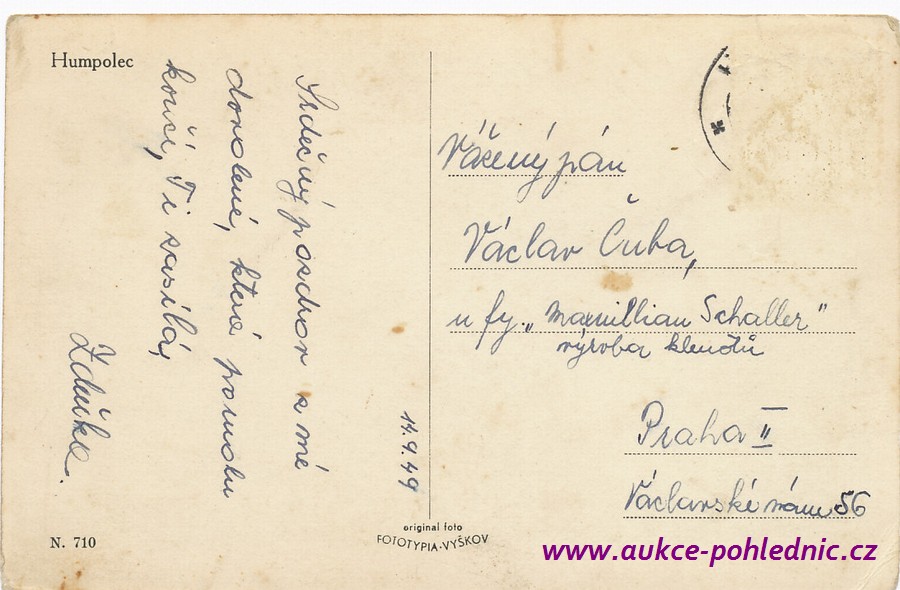 Humpolec
Srdečný pozdrav z mé
dovolené, která pomalu
končí, Ti zasílá,
Zdeňka.
14.9.49
Vážený pán
Václav Čuba,
u fy. „Maxmillian Schaller"
výroba klenotů
Praha II
Václavské nám 56
N. 710
original foto
FOTOTYPIA-VYŠKOV
www.aukce-pohlednic.cz